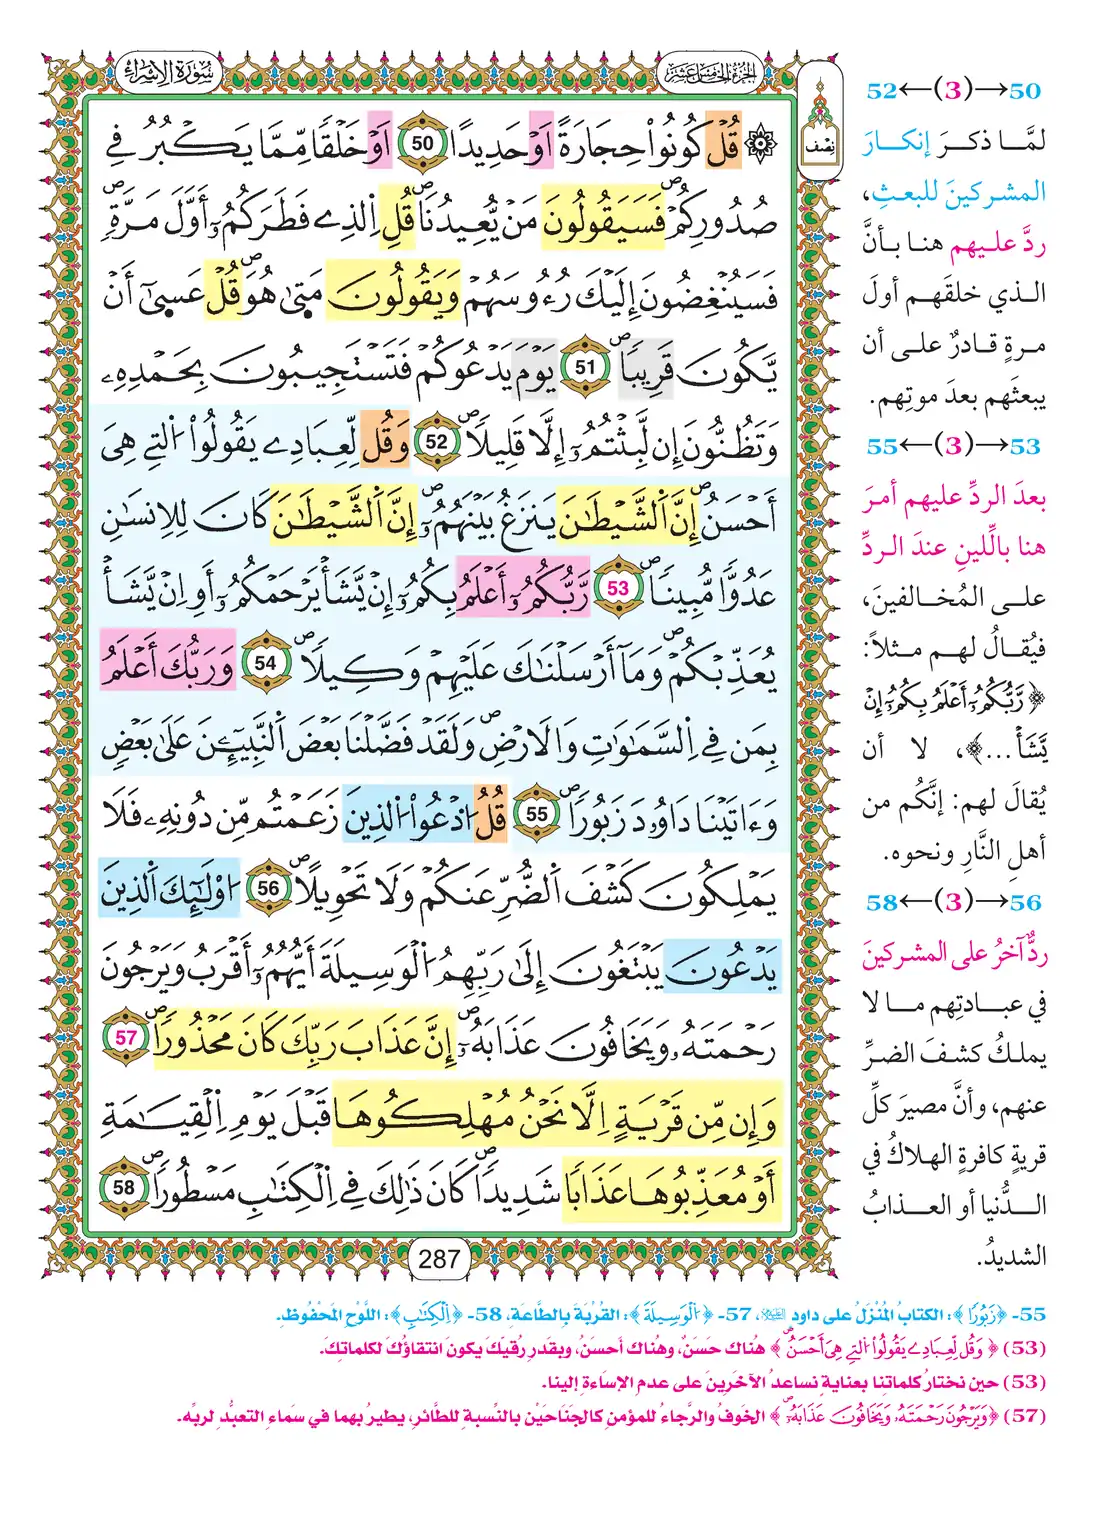 سُورَةُ الإِسْرَاءِ
الجُزْءُ الخَامِسَ عَشَرَ
نِصْف
۞ قُلْ كُونُوا۟ حِجَارَةً اَوْ حَدِيدًا 50 اَوْ خَلْقًا مِّمَّا يَكْبُرُ فِے
صُدُورِكُمْ فَسَيَقُولُونَ مَنْ يُّعِيدُنَا قُلِ اِ۬لذِے فَطَرَكُمُۥٓ أَوَّلَ مَرَّةٖ
فَسَيُنْغِضُونَ إِلَيْكَ رُءُوسَهُمْ وَيَقُولُونَ مَتىٰ هُوَ قُلْ عَسىٰٓ أَنْ
يَّكُونَ قَرِيبًا 51 يَوْمَ يَدْعُوكُمْ فَتَسْتَجِيبُونَ بِحَمْدِهِۦ
وَتَظُنُّونَ إِن لَّبِثْتُمُۥٓ إِلَّا قَلِيلًا 52 وَقُل لِّعِبَادِے يَقُولُوا۟ اُ۬لتِے هِىَ
أَحْسَنُ إِنَّ اَ۬لشَّيْطَٰنَ يَنزَغُ بَيْنَهُمُۥٓ إِنَّ اَ۬لشَّيْطَٰنَ كَانَ لِلِانسَٰنِ
عَدُوًّا مُّبِينًا 53 رَّبُّكُمُۥٓ أَعْلَمُ بِكُمُۥٓ إِنْ يَّشَأْ يَرْحَمْكُمُۥٓ أَوِ اِنْ يَّشَأْ
يُعَذِّبْكُمْ وَمَآ أَرْسَلْنَٰكَ عَلَيْهِمْ وَكِيلًا 54 وَرَبُّكَ أَعْلَمُ
بِمَن فِے اِ۬لسَّمَٰوَٰتِ وَالَارْضِ وَلَقَدْ فَضَّلْنَا بَعْضَ اَ۬لنَّبِيٓـِٕنَ عَلَىٰ بَعْضٍ
وَءَاتَيْنَا دَاوُۥدَ زَبُورًا 55 قُلُ اُ۟دْعُوا۟ اُ۬لذِينَ زَعَمْتُم مِّن دُونِهِۦ فَلَا
يَمْلِكُونَ كَشْفَ اَ۬لضُّرِّ عَنكُمْ وَلَا تَحْوِيلًا 56 اُ۟وْلَٰٓئِكَ اَ۬لذِينَ
يَدْعُونَ يَبْتَغُونَ إِلَىٰ رَبِّهِمُ اُ۬لْوَسِيلَةَ أَيُّهُمُۥٓ أَقْرَبُ وَيَرْجُونَ
رَحْمَتَهُۥ وَيَخَافُونَ عَذَابَهُۥٓ إِنَّ عَذَابَ رَبِّكَ كَانَ مَحْذُورًا 57
وَإِن مِّن قَرْيَةٍ اِلَّا نَحْنُ مُهْلِكُوهَا قَبْلَ يَوْمِ اِ۬لْقِيَٰمَةِ
أَوْ مُعَذِّبُوهَا عَذَابًا شَدِيدًا كَانَ ذَٰلِكَ فِے اِ۬لْكِتَٰبِ مَسْطُورًا 58
287
50→(3)←52
لمَّا ذكرَ إنكارَ
المشركينَ للبعثِ،
ردَّ عليهم هنا بأنَّ
الذي خلقَهم أولَ
مرةٍ قادرٌ على أن
يبعثَهم بعدَ موتِهم.
53→(3)←55
بعدَ الردِّ عليهم أمرَ
هنا باللِّينِ عندَ الردِّ
على المُخالفينَ،
فيُقالُ لهم مثلاً:
﴿رَّبُّكُمُۥٓ أَعْلَمُ بِكُمُۥٓ إِنْ
يَّشَأْ...﴾، لا أن
يُقالَ لهم: إنَّكُم من
أهلِ النَّارِ ونحوه.
56→(3)←58
ردٌّ آخرُ على المشركينَ
في عبادتِهم ما لا
يملكُ كشفَ الضرِّ
عنهم، وأنَّ مصيرَ كلِّ
قريةٍ كافرةٍ الهلاكُ في
الدُّنيا أو العذابُ
الشديدُ.
55- ﴿زَبُورًا﴾: الكتابُ المُنْزَلُ على داود عليه السلام، 57- ﴿اُ۬لْوَسِيلَةَ﴾: القُرْبَةَ بِالطَّاعَةِ، 58- ﴿اِ۬لْكِتَٰبِ﴾: اللَّوْحِ المَحْفُوظِ.
(53) ﴿وَقُل لِّعِبَادِے يَقُولُوا۟ اُ۬لتِے هِىَ أَحْسَنُ﴾ هناك حَسَنٌ، وهناك أحسنُ، وبقدرِ رُقيِّكَ يكون انتقاؤُكَ لكلماتِكَ.
(53) حين نختارُ كلماتِنا بعنايةٍ نساعدُ الآخَرينَ على عدمِ الإساءةِ إلينا.
(57) ﴿وَيَرْجُونَ رَحْمَتَهُۥ وَيَخَافُونَ عَذَابَهُۥٓ﴾ الخَوفُ والرَّجاءُ للمؤمنِ كالجَنَاحَيْن بالنِّسبةِ للطَّائرِ، يطيرُ بهما في سَماءِ التعبُّدِ لربِّه.